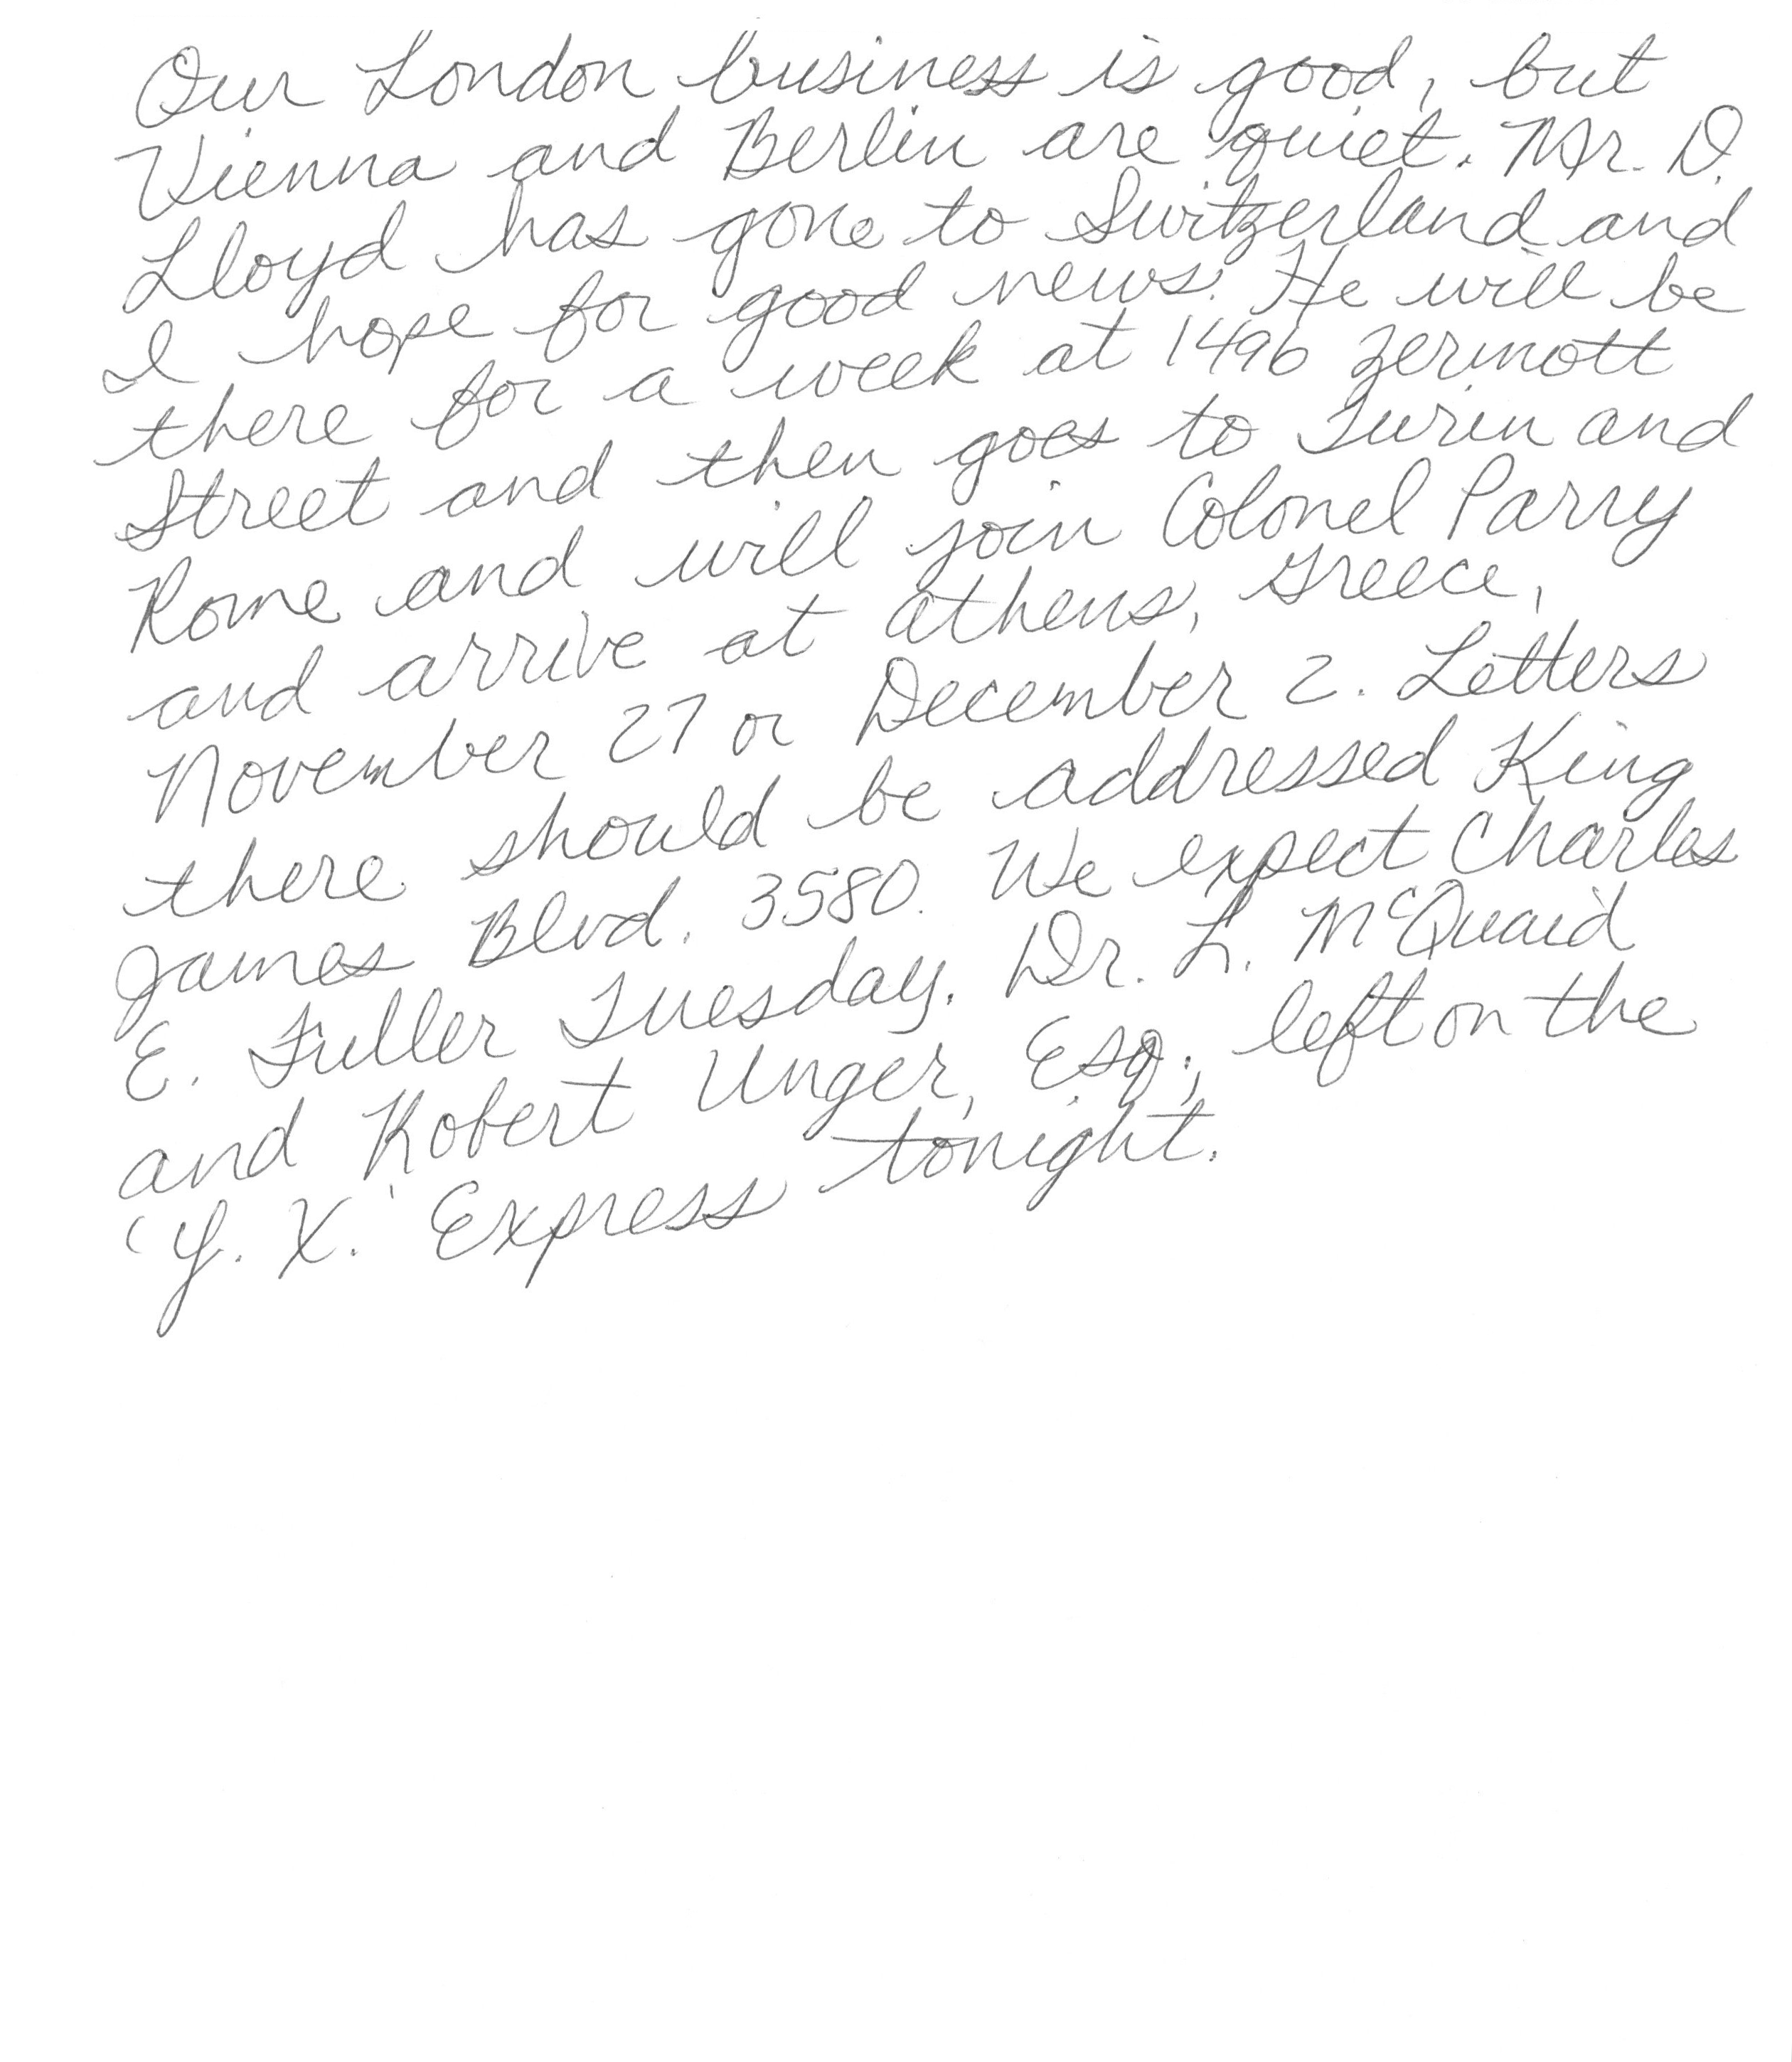 Our London business is good, but
Vienna and Berlin are quiet. Mr. D.
Lloyd has gone to Switzerland and
I hope for good news. He will be
there for a week at 1496 Zermott
Street and then goes to Turin and
Rome and will join Colonel Parry
and arrive at Athens, Greece,
November 27 or December 2. Letters
there should be addressed King
James Blvd. 3580. We expect Charles
E. Fuller Tuesday. Dr. L. McQuaid
and Robert Unger, Esq., left on the
'Y. X.' Express tonight.